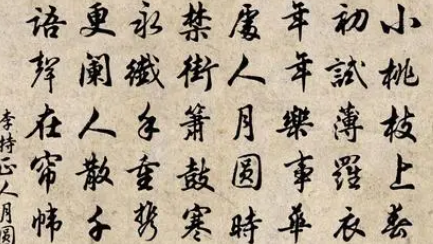 小桃枝上春
初試薄羅衣
年年樂事華
處人月圓時
禁街簫鼓寒
永纖手重携
更闌人散千
語聲在帘幃
李持正人月圓